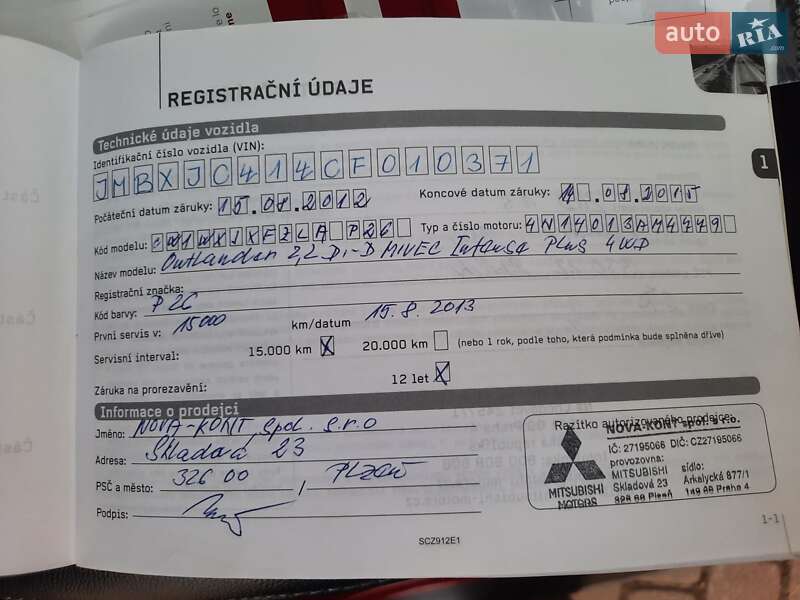 auto RIA
.com
REGISTRAČNÍ ÚDAJE
Technické údaje vozidla
Identifikační číslo vozidla (VIN):
JMBXJC414CF010371
Počáteční datum záruky: 15.08.2012 Koncové datum záruky: 14.08.2015
Kód modelu: P26 Typ a číslo motoru: 4N14013AH4449
Název modelu: Outlander 2,2 DI-D MIVEC Intense Plus 4WD
Registrační značka:
Kód barvy: P26
První servis v: 15000 km/datum 15.8.2013
Servisní interval: 15.000 km X 20.000 km (nebo 1 rok, podle toho, která podmínka bude splněna dříve)
Záruka na prorezavění: 12 let X
1
Informace o prodejci
Jméno: NOVA-KONT, spol. s.r.o Razítko autorizovaného prodejce:
Adresa: Skladová 23
PSČ a město: 326 00 , PLZEŇ
Podpis:
NOVA-KONT spol. s r.o.
IČ: 27195066 DIČ: CZ27195066
provozovna:
MITSUBISHI sídlo:
Skladová 23 Arkalycká 877/1
326 00 Plzeň 149 00 Praha 4
MITSUBISHI
MOTORS
1-1
SCZ912E1